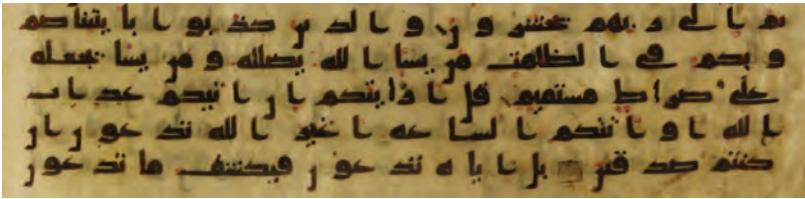 ثم الى ربهم يحشرون والذين كذبوا بايتنا صم
وبكم في الظلمت من يشا الله يضلله ومن يشا يجعله
على صرط مستقيم قل ارايتكم ان اتيكم عذاب
الله او اتتكم الساعه اغير الله تدعون ان
كنتم صدقين بل اياه تدعون فيكشف ما تدعون